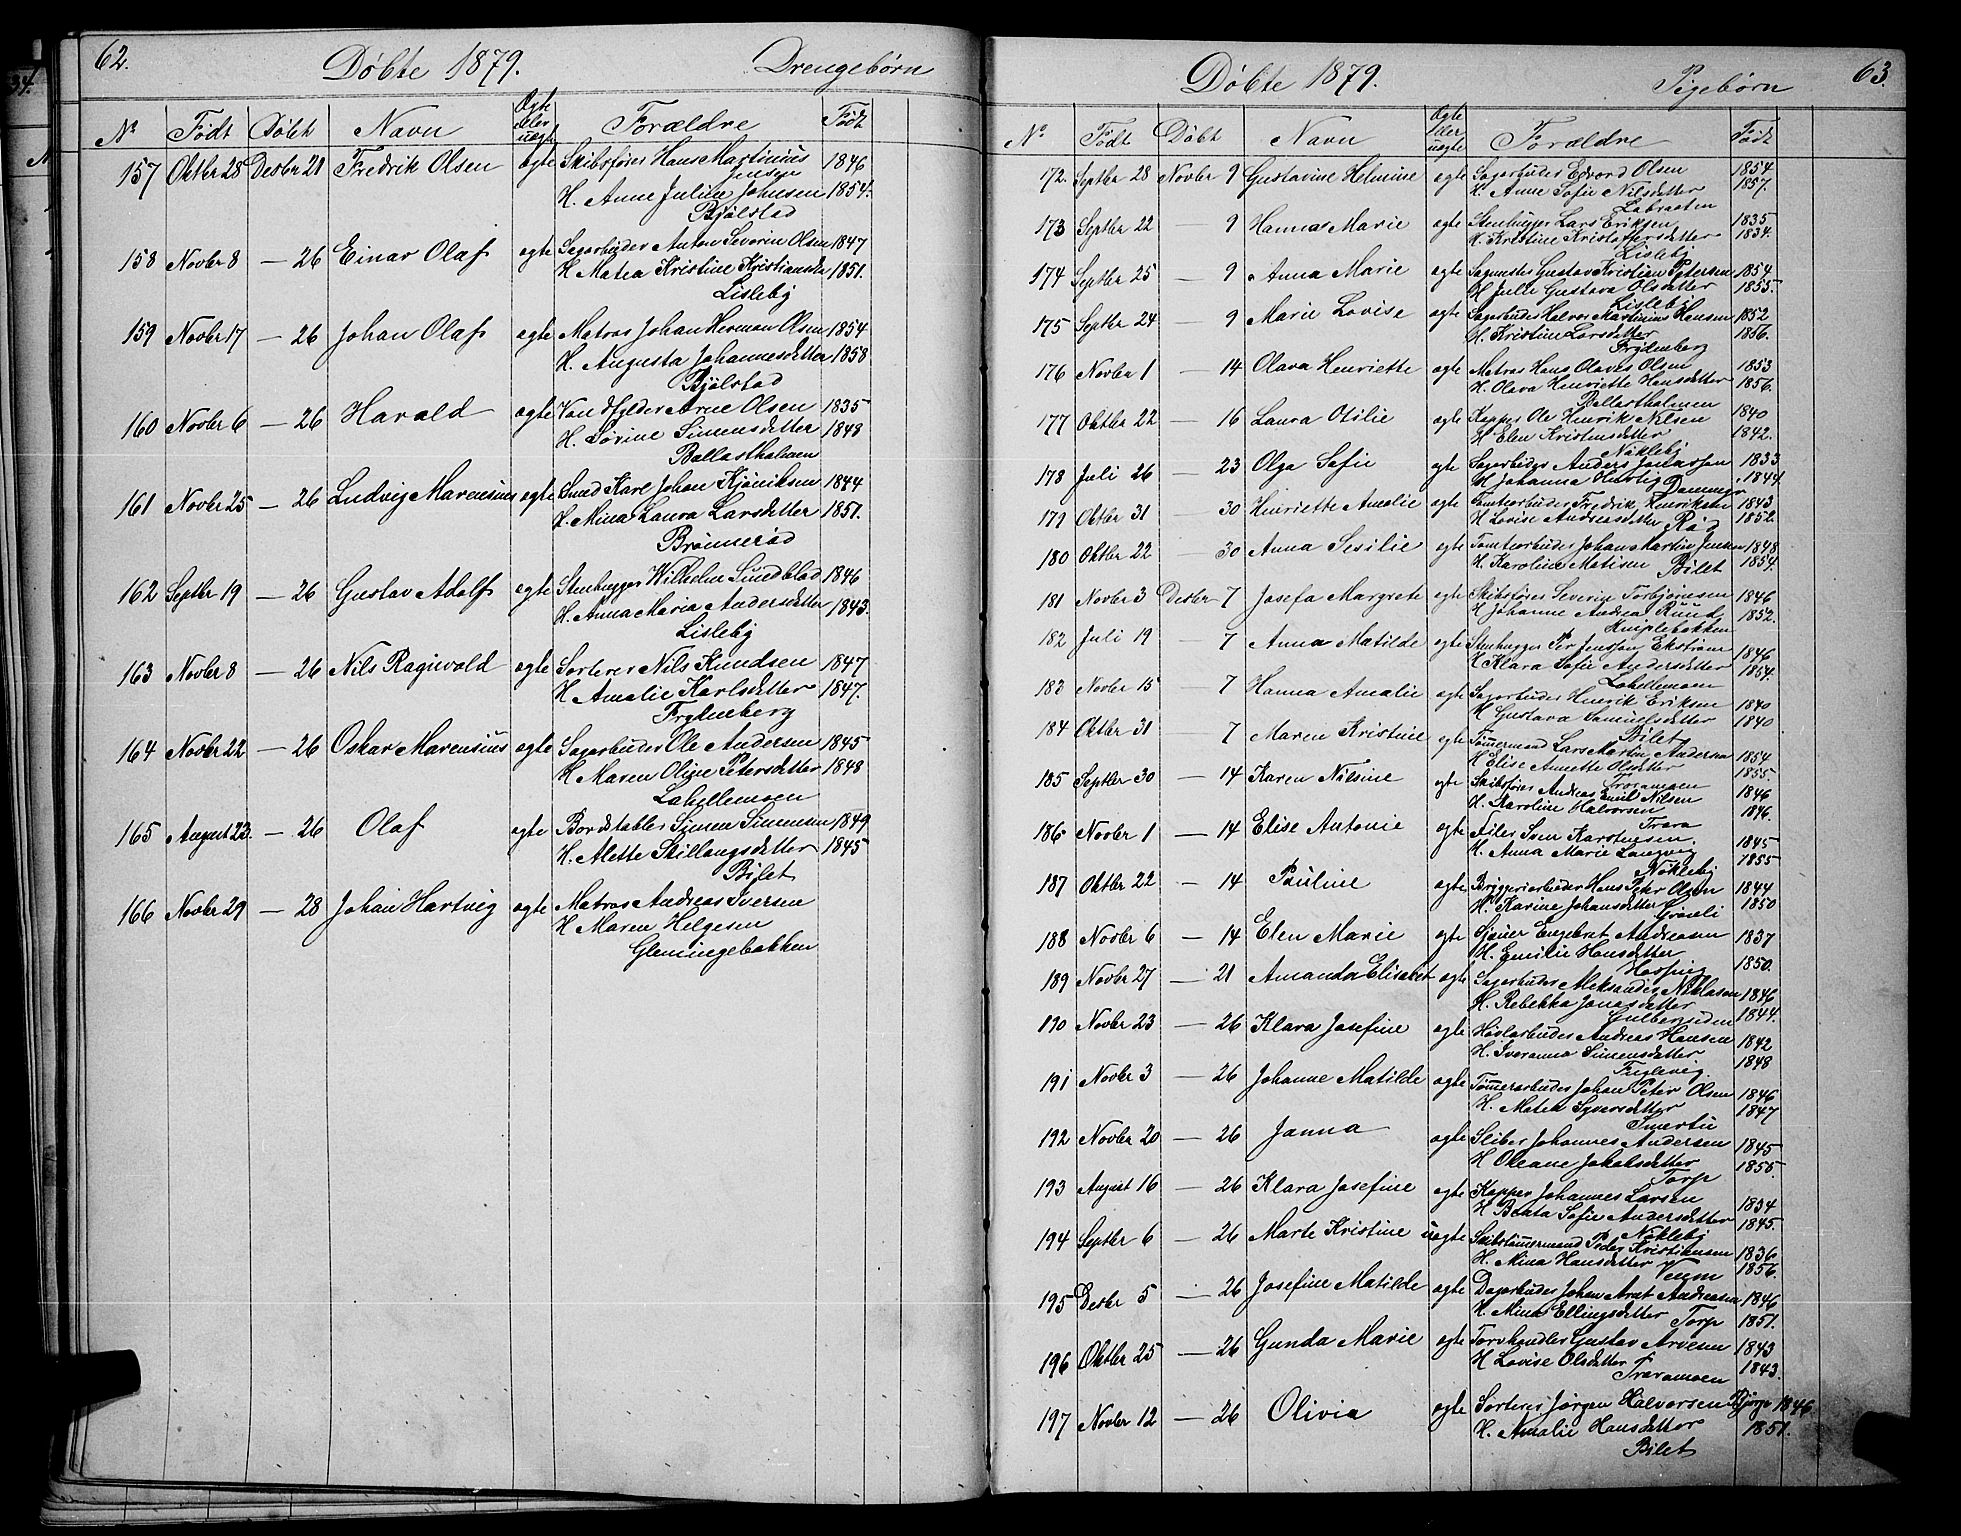 62.
Döbte 1879.
Drengebörn
No Födt Döbt Navn Ægte eller uægte Forældre Födt
157 Oktbr 28 Desbr 21 Fredrik Olsen ægte Skibsförer Hans Martinius Jensen 1846
H. Anne Juline Johnsen 1854.
Bjölstad
158 Novbr 8 — 26 Einar Olaf ægte Sagarbeider Anton Severin Olsen 1847
H. Matea Kristine Kristiansdr 1851.
Lisleby
159 Novbr 17 — 26 Johan Olaf ægte Matros Johan Herman Olsen 1854
H. Augusta Johannesdatter 1858
Bjölstad
160 Novbr 6 — 26 Harald ægte Arne Olsen 1835
H. Sörine Simensdatter 1843
Ballasthalmen
161 Novbr 25 — 26 Ludvig Marensius ægte Smed Karl Johan Kjöniksen 1844
H. Mina Laura Larsdatter 1851.
Brönneröd
162 Septbr 19 — 26 Gustav Adolf ægte Stenhugger Wilhelm Sundblad 1846
H. Anna Maria Andersdatter 1843.
Lisleby
163 Novbr 8 — 26 Nils Ragnvald ægte Sorterer Nils Knudsen 1847
H. Amalie Karlsdatter 1847.
Frydenberg
164 Novbr 22 — 26 Oskar Marensius ægte Sagarbeider Ole Andersen 1845
H. Maren Oline Petersdatter 1848
Labellemoen
165 August 23. — 26 Olaf ægte Bordstabler Simen Simensen 1849
H. Alette Stillaugsdatter 1845
Bilet
166 Novbr 29 — 28 Johan Hartvig ægte Matros Andreas Iversen
H. Maren Helgesen
Glemingebakken
Döbte 1879.
Pigebörn
63.
No Födt Döbt Navn Ægte eller uægte Forældre Födt
172. Septbr 28 Novbr 9 Gustavine Helmine ægte Sagarbeider Edvard Olsen 1854
H. Anne Sofie Nilsdatter 1857.
Labraaten
173 Septbr 22 — 9 Hanna Marie ægte Stenhugger Lars Eriksen 1835
H. Kristine Kristoffersdatter 1834.
Lisleby
174 Septbr 25 — 9 Anna Marie ægte Sagmester Gustav Kristian Petersen 1854
H. Julie Gustava Olsdatter 1855.
Lisleby
175 Septbr 24 — 9 Marie Lovise ægte Sagarbeider Halvor Martinius Hansen 1852
H. Kristine Larsdatter 1856.
Frydenberg
176 Novbr 1 — 14 Olava Henriette ægte Matros Hans Olaves Olsen 1853
H. Olava Henriette Hansdatter 1856.
Ballasthalmen
177 Oktbr 22 — 16 Laura Otilie ægte Kapper Ole Henrik Nilsen 1840
H. Elen Kristensdatter 1842.
Nökleby
178 Juli 26 — 23 Olga Sofie ægte Sagarbeider Anders Jonassen 1833
H. Johanna Hertvig 1844
Dammyr
179 Oktbr 31 — 30 Henriette Amalie ægte Tomtearbeider Fredrik Henriksen 1843
H. Lovise Andreasdatter Röd 1852.
180 Oktbr 22 — 30 Anna Sesilie ægte Tomtearbeider Johan Martin Jensen 1848
H. Karoline Matisen Bilet 1854.
181 Novbr 3 Desbr 7 Josefa Margrete ægte Skibsförer Severin Torbjörnsen 1846
H. Johanne Andrea Ruud 1852.
Kniplebakken
182 Juli 19 — 7 Anna Matilde ægte Stenhugger Per Jensson Ekström 1846
H. Klara Sofie Andersdatter 1854.
Labellemoen
183 Novbr 15 — 7 Hanna Amalie ægte Sagarbeider Henrik Eriksen 1840
H. Gustava Samuelsdatter 1840
Bilet
184 Oktbr 31 — 7 Maren Kristine ægte Tömmermand Lars Martin Andersen 1854
H. Elise Annette Olsdatter 1855.
Traramoen
185 Septbr 30 — 14 Karen Nilsine ægte Skibsförer Andreas Emil Nilsen 1846
H. Karoline Halvorsen 1846.
Trara
186 Novbr 1 — 14 Elise Antonie ægte Filer Sven Karstensen 1845
H. Anna Marie Langvig 1855
Nökleby
187 Oktbr 22 — 14 Pauline ægte Bryggeriarbeider Hans Peter Olsen 1844
H. Karine Johansdatter Grönli 1850
188 Novbr 6 — 14 Elen Marie ægte Sjauer Engebret Andreasen 1837
H. Emilie Hansdatter 1850.
189 Novbr 27 — 21 Amanda Elisabet ægte Sagarbeider Aleksander Niklasen 1846
H. Rebekka Jonasdatter 1844.
Gulbergsiden
190 Novbr 23 — 26 Klara Josefine ægte Hövlarbeider Andreas Hansen 1842
H. Iveranna Simensdatter 1848
Fuglevig.
191 Novbr 3 — 26 Johanne Matilde ægte Tömmerarbeider Johan Peter Olsen 1846
H. Matea Syversdatter 1847
Smertu
192 Novbr 20 — 26 Janna ægte Sliber Johannes Andersen 1845
H. Oleane Jakobsdatter 1855.
Torp
193 August 16 — 26 Klara Josefine ægte Kapper Johannes Larsen 1834
H. Beata Sofie Andersdatter 1845.
Nökleby
194 Septbr 6 — 26 Marte Kristine uægte Skibstömmermand Peder Kristiansen 1836
H. Mina Hansdatter 1856.
195 Desbr 5 — 26 Josefine Matilde ægte Dagarbeider Johan Arnt Andreasen 1846
H. Mina Ellingsdatter Torp 1851.
196 Oktbr 25 — 26 Gunda Marie ægte Torvhandler Gustav Arvesen 1843
H. Lovise Olsdatter 1843.
Traramoen
197 Novbr 12 — 26 Olivia ægte Sorterer Jörgen Halvorsen 1846
H. Amalie Hansdatter 1851.
Bilet